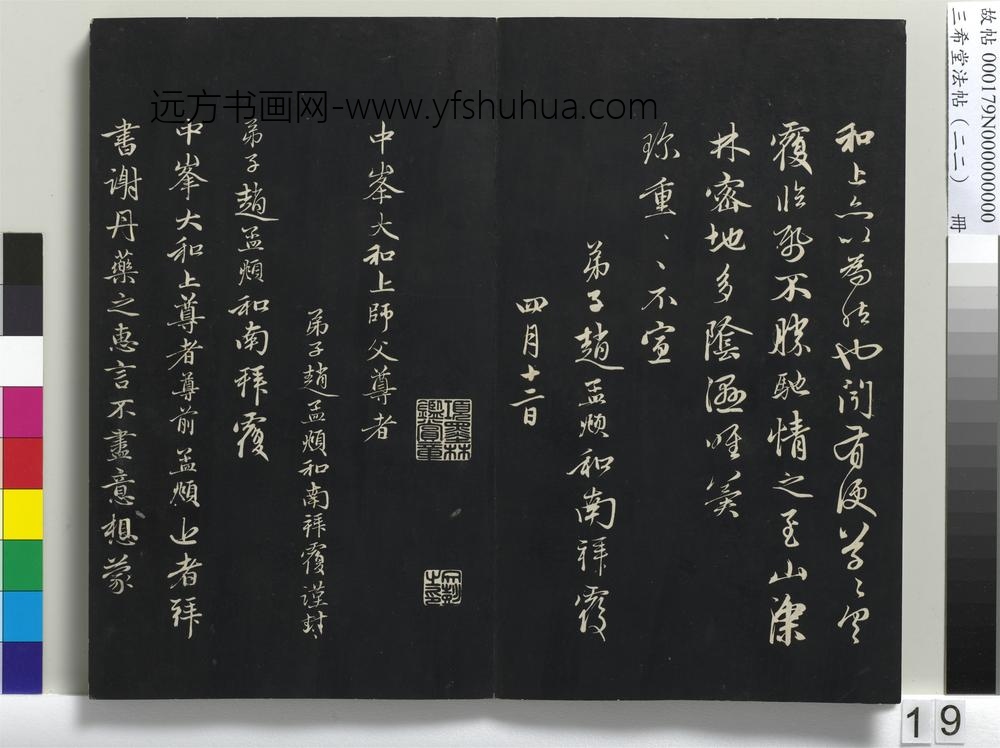 和上亦以為然也閒有便草々具
覆臨紙不勝馳情之至山深
林密地多陰濕唯冀
珍重〻不宣
弟子趙孟頫和南拜覆
四月十二日
中峯大和上師父尊者
弟子趙孟頫和南拜覆謹封
弟子趙孟頫和南拜覆
中峯大和上尊者尊前孟頫近者拜
書謝丹藥之惠言不盡意想蒙
項墨林鑑賞章
远方书画网-www.yfshuhua.com
故帖 000179N000000000
三希堂法帖（二二） 冊
19